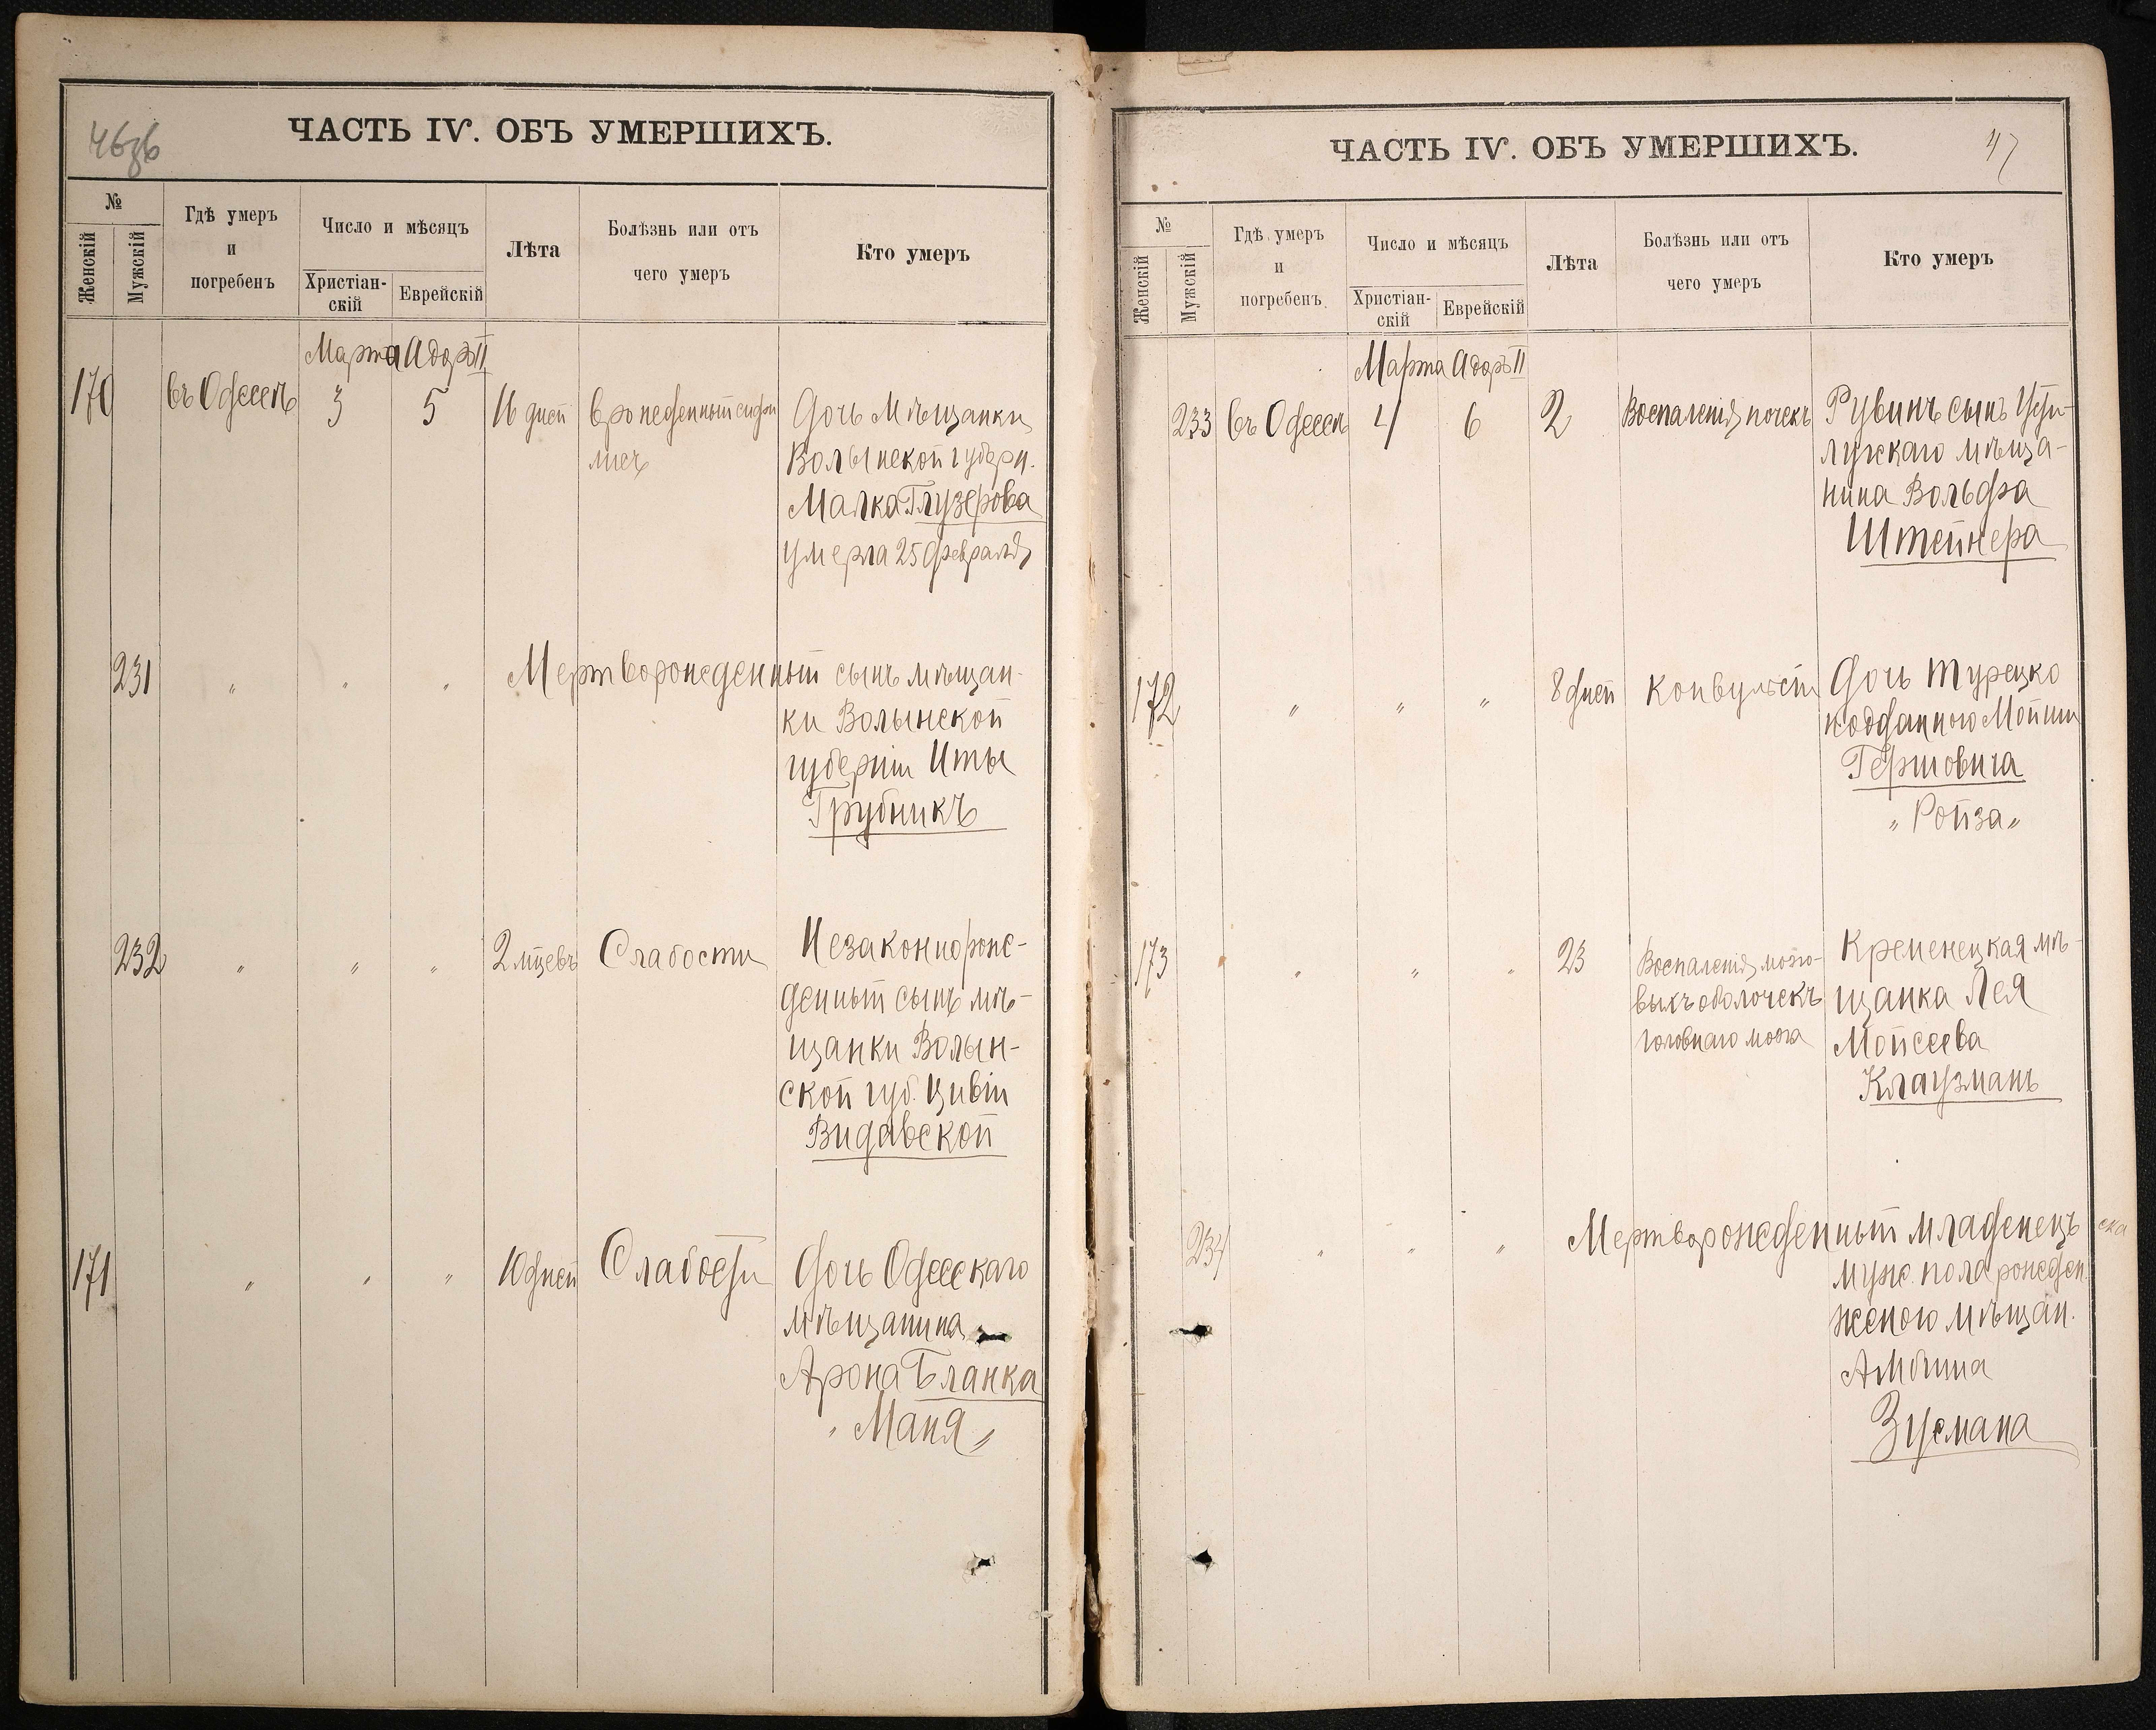 ЧАСТЬ IV. ОБЪ УМЕРШИХЪ.
№
Женскій
Мужскій
Гдѣ умеръ
и
погребенъ
Число и мѣсяцъ
Христіан-
скій
Еврейскій
Лѣта
Болѣзнь или отъ
чего умеръ
Кто умеръ
Марта Адоръ II
170 въ Одессѣ 3 5 16 дней врожденный сифи
лисъ
Дочь Мѣщанки
Волынской губерн.
Малка Глузерова
умерла 25 февраля
231 " " " Мертворожденный сынъ мѣщан-
ки Волынской
губерніи Иты
Трубникъ
232 " " " 2 мцевъ Слабости Незаконнорож-
денный сынъ мѣ-
щанки Волын-
ской губ. Цивіи
Видавской
171 " " " 10 дней Слабости Дочь Одесскаго
мѣщанина
Арона Бланка
"Маня"
ЧАСТЬ IV. ОБЪ УМЕРШИХЪ.
47
№
Женскій
Мужскій
Гдѣ умеръ
и
погребенъ
Число и мѣсяцъ
Христіан-
скій
Еврейскій
Лѣта
Болѣзнь или отъ
чего умеръ
Кто умеръ
Марта Адоръ II
233 въ Одессѣ 4 6 2 Воспаленія почекъ Рувинъ сынъ Усти-
лужскаго мѣща-
нина Вольфа
Штейнера
172 " " " 8 дней Конвульсіи Дочь Турецко
подданного Мойши
Гершовича
"Ройза"
173 " " " 23 Воспаленія мозго-
выхъ оболочекъ
головнаго мозга
Кременецкая мѣ-
щанка Лея
Мойсеева
Клаузманъ
234 " " " Мертворожденный младенецъ
муж. пола рожден.
женою мѣщан.
Зусмана